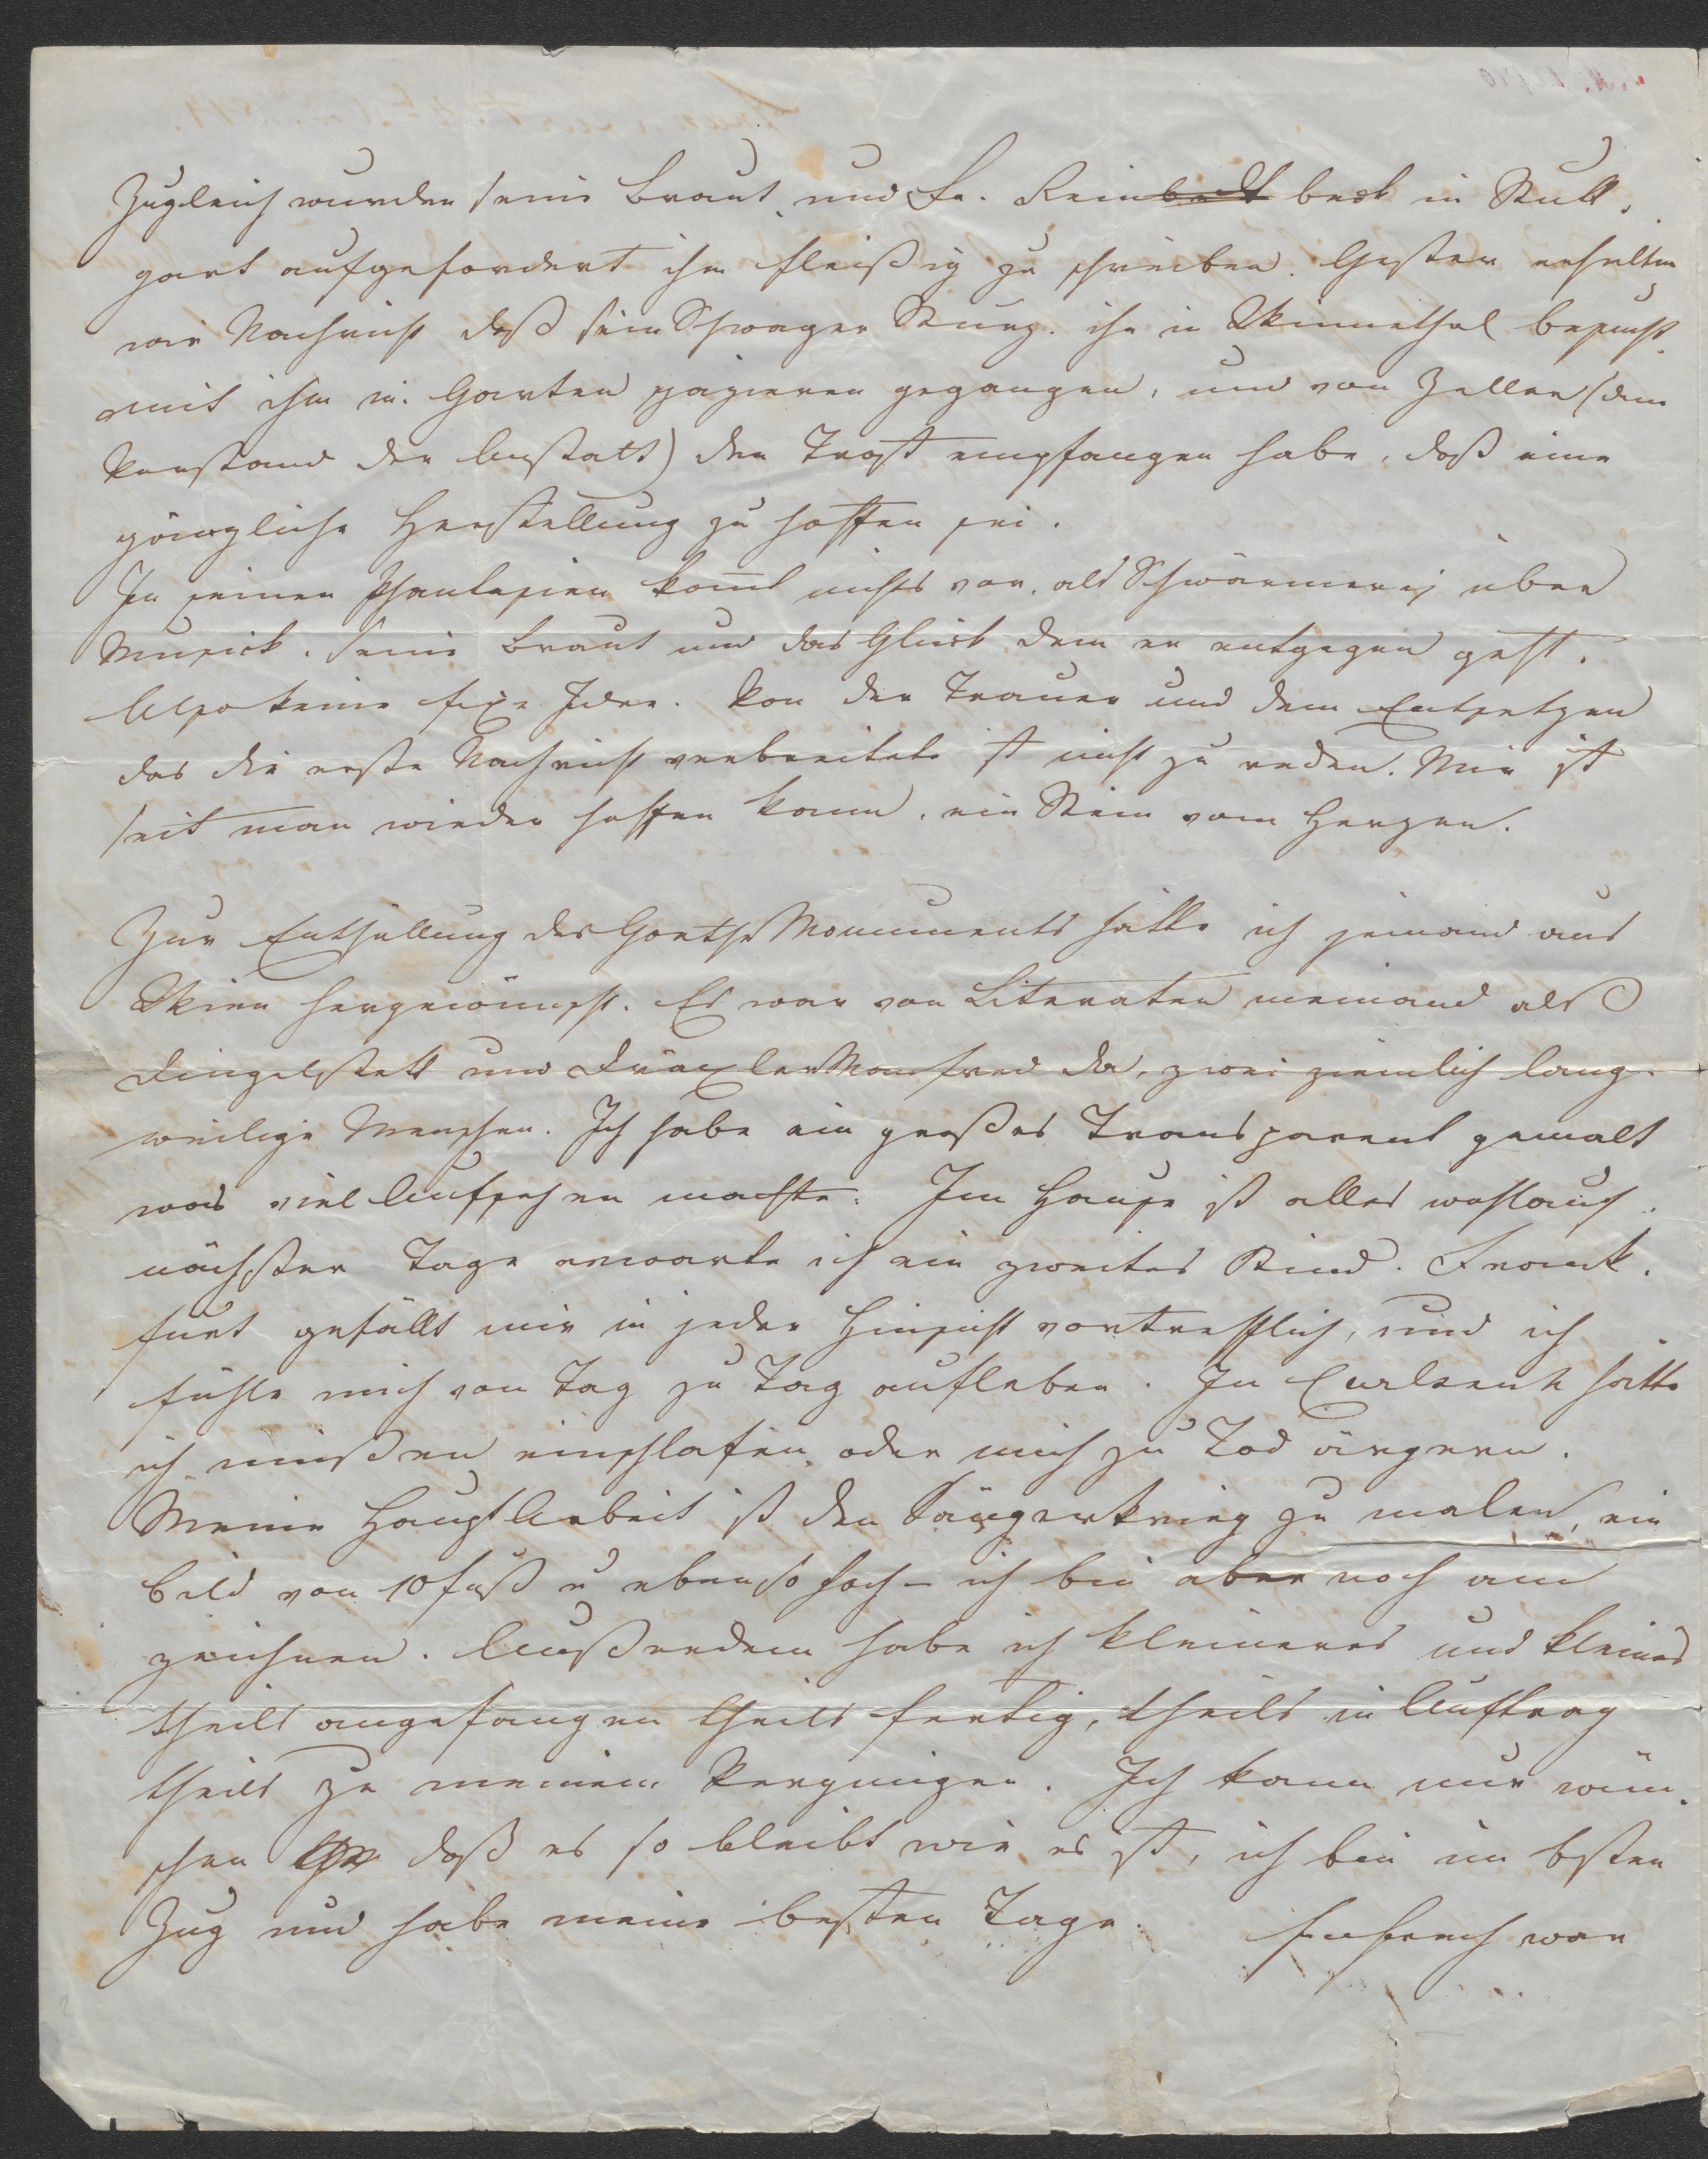 Zugleich wurden seine Braut, und Fr. Reinbedt beck in Stutt,
gart aufgefordert ihm fleißig zu schreiben. Gestern erhielten
wir Nachricht daß sein Schwager Schurz. ihn in Winnethal besucht
mit ihm im Garten spazieren gegangen, und von Zeller (dem
Vorstand der Anstalt) den Trost empfangen habe, daß eine
gänzliche Herstellung zu hoffen sei.
In seinen Phantasien kom̄t nichts vor, als Schwärmerey über
Musick. Seine Braut und das Glück dem er entgegen geht.
Also keine fixe Idee. Von der Trauer und dem Entsetzen
das die erste Nachricht verbreitete ist nicht zu reden. Mir ist
seit man wieder hoffen kann, ein Stein vom Herzen.
Zur Enthüllung des Goethe Monuments hätte ich jemand aus
Wien hergewünscht. Es war von Literaten niemand als
Dingelstett und Dräxler Manfred da, zwei ziemlich lang-
weilige Menschen. Ich habe ein großes Transparent gemalt
was viel Aufsehen machte. Im Hause ist alles wohlauf.
nächster Tage erwarte ich ein zweites Kind. Frank,
furt gefällt mir in jeder Hinsicht vortrefflich, und ich
fühle mich von Tag zu Tag aufleben. In Carlsruh hätte
ich müßen einschlafen, oder mich zu Tod ärgern.
Meine Hauptarbeit ist den Sängerkrieg zu malen, ein
Bild von 10 Fuß u ebenso hoch – ich bin aber noch am
zeichnen. Außerdem habe ich kleineres und kleines
theils angefangen theils fertig, theils in Auftrag
theils zu meinem Vergnügen. Ich kann nur wün,
schen daß es so bleibt wie es ist, ich bin im bsten
Zug und habe meine besten Tage. Fuhrich war